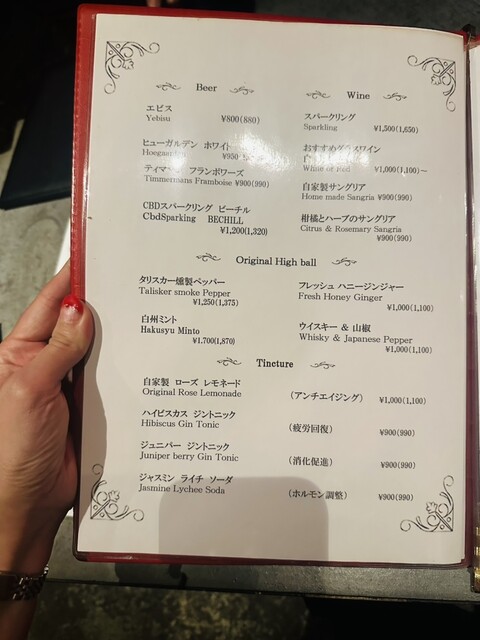 Beer
エビス
Yebisu ¥800(880)
ヒューガルデン ホワイト
¥950
フランボワーズ
Timmermans Framboise ¥900(990)
CBDスパークリング ビーチル
CbdSparking BECHILL
¥1,200(1,320)
Wine
スパークリング
Sparkling ¥1,500(1,650)
おすすめグラスワイン
White or Red ¥1,000(1,100)～
自家製サングリア
Home made Sangria ¥900(990)
柑橘とハーブのサングリア
Citrus & Rosemary Sangria
¥900(990)
Original High ball
タリスカー燻製ペッパー
Talisker smoke Pepper
¥1,250(1,375)
白州ミント
Hakusyu Minto
¥1,700(1,870)
フレッシュ ハニージンジャー
Fresh Honey Ginger
¥1,000(1,100)
ウイスキー & 山椒
Whisky & Japanese Pepper
¥1,000(1,100)
Tincture
自家製 ローズ レモネード
Original Rose Lemonade （アンチエイジング） ¥1,000(1,100)
ハイビスカス ジントニック
Hibiscus Gin Tonic （疲労回復） ¥900(990)
ジュニパー ジントニック
Juniper berry Gin Tonic （消化促進） ¥900(990)
ジャスミン ライチ ソーダ
Jasmine Lychee Soda （ホルモン調整） ¥900(990)